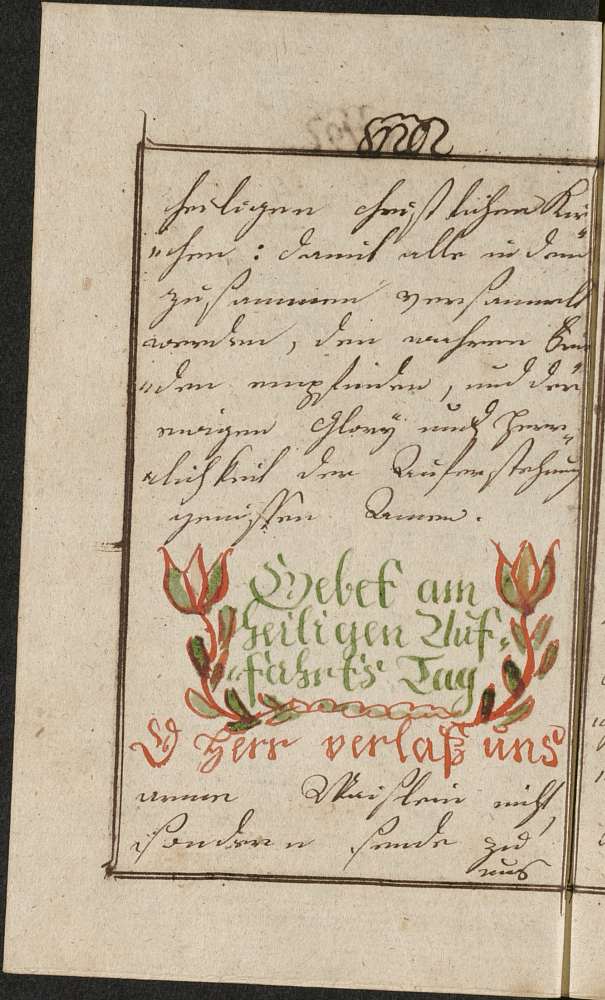 heiligen christlichen Kir
"chen : damit alle in dem
zusammen versamelt
werden, den wahren
"den empfinden, und der
ewigen Glory und Herr"
"lichkeit der Auferstehung
genissen Amen.
Gebet am
heiligen Auf"
"fahrts Tag
O Herr verlaß uns
arme Waislein nicht,
sondern sende zu
uns